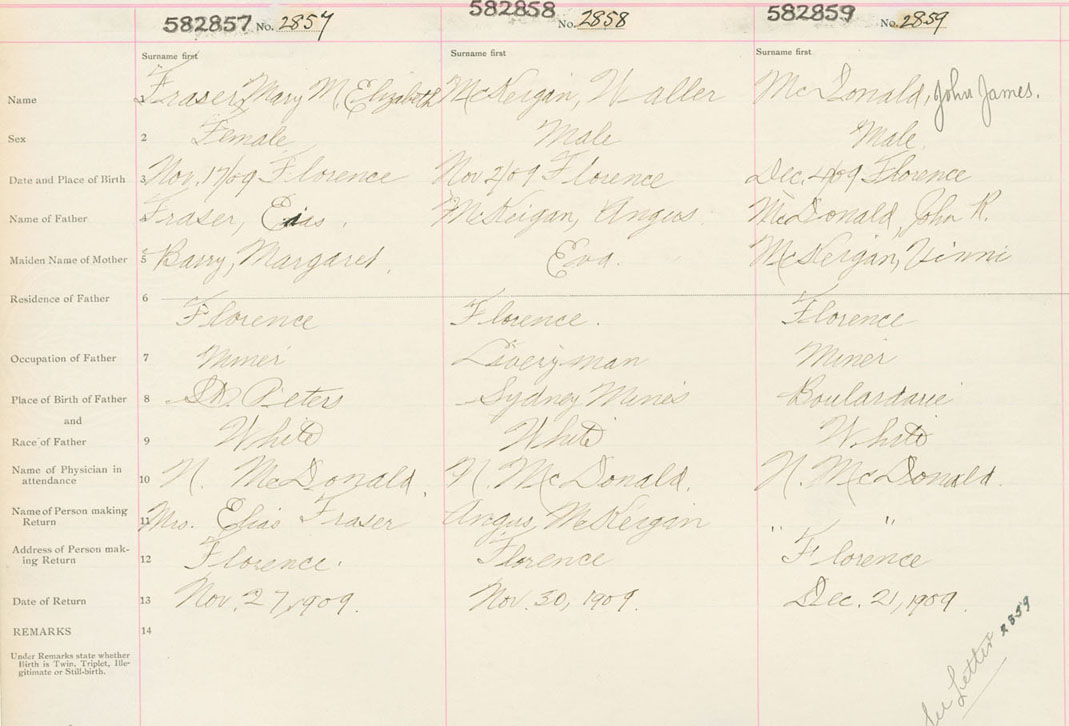 582857 No. 2857 582858 No. 2858 582859 No. 2859
Surname first Surname first Surname first
Name 1 Fraser, Mary M. Elizabeth McKeigan, Walter McDonald, John James.
Sex 2 Female Male Male
Date and Place of Birth 3 Nov. 17/09 Florence Nov 2/09 Florence Dec. 4/09 Florence
Name of Father 4 Fraser, Elias. McKeigan, Angus. McDonald, John R.
Maiden Name of Mother 5 Barry, Margaret. Eva. McKeigan,
Residence of Father 6 Florence Florence. Florence
Occupation of Father 7 Miner Liveryman Miner
Place of Birth of Father 8 St. Peters Sydney Mines Boulardarie
and
Race of Father 9 White White White
Name of Physician in
attendance 10 N. McDonald. N. McDonald. N. McDonald.
Name of Person making
Return 11 Mrs. Elias Fraser Angus McKeigan " "
Address of Person mak-
ing Return 12 Florence. Florence Florence
Date of Return 13 Nov. 27, 1909. Nov. 30, 1909. Dec. 21, 1909.
REMARKS 14
Under Remarks state whether
Birth is Twin, Triplet, Ille-
gitimate or Still-birth.
See Letter 2859